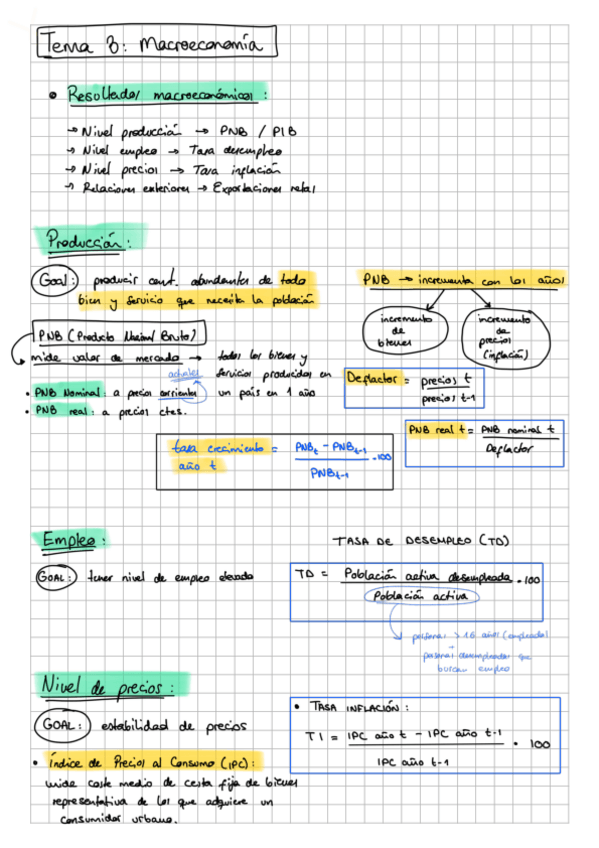 Tema 8: Macroeconomía
• Resultados macroeconómicos:
→ Nivel producción → PNB / PIB
→ Nivel empleo → Tasa desempleo
→ Nivel precios → Tasa inflación
→ Relaciones exteriores → Exportaciones netas
Producción:
Goal: producir cant. abundantes de todo
bien y servicio que necesita la población
PNB → incrementa con los años
incremento
de
bienes
incremento
de
precios
(inflación)
PNB (Producto Nacional Bruto)
mide valor de mercado → todos los bienes y
servicios producidos en
un país en 1 año
actuales
• PNB Nominal: a precios corrientes
• PNB real: a precios ctes.
Deflactor = precios t
precios t-1
PNB real t = PNB nominal t
Deflactor
tasa crecimiento = PNBt - PNBt-1 · 100
año t
PNBt-1
Empleo:
GOAL: tener nivel de empleo elevado
TASA DE DESEMPLEO (TD)
TD = Población activa desempleada · 100
Población activa
personas > 16 años (empleadas)
+
personas desempleadas que
buscan empleo
Nivel de precios:
GOAL: estabilidad de precios
• TASA INFLACIÓN:
TI = IPC año t - IPC año t-1 · 100
IPC año t-1
• Índice de Precios al Consumo (IPC):
mide coste medio de cesta fija de bienes
representativa de los que adquiere un
consumidor urbano.